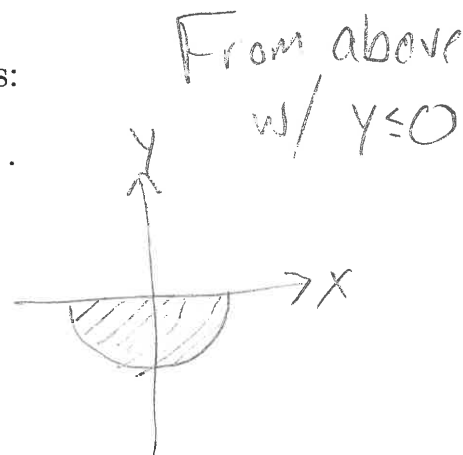 From above
s:
w/ y≤0
.
y
x